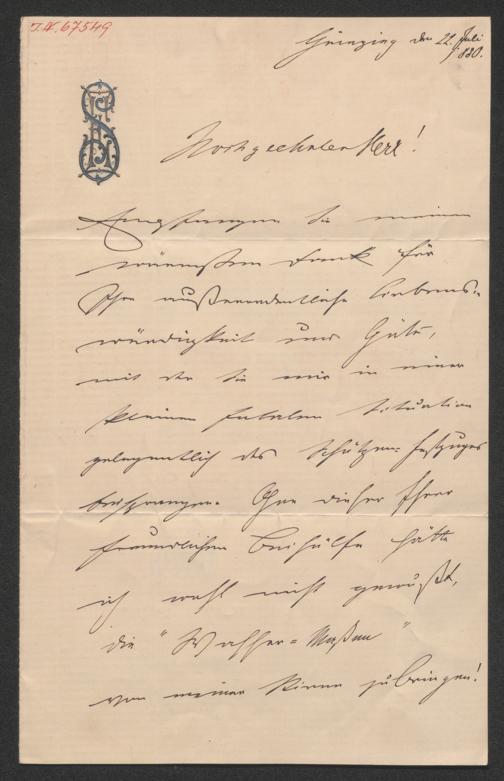 I.N. 67549
Grinzing den 22. Juli
1880.
Hochgeehrter Herr!
Empfangen Sie meinen
wärmsten Dank für
Ihre außerordentliche Liebens-
würdigkeit und Güte,
mit der Sie mir in einer
kleinen fatalen Situation
gelegentlich des Schützen-Festzuges
beisprangen. Ohne dieser Ihrer
freundlichen Beihülfe hätte
ich wohl nicht gewußt,
die "
von meiner Stirne zu bringen!